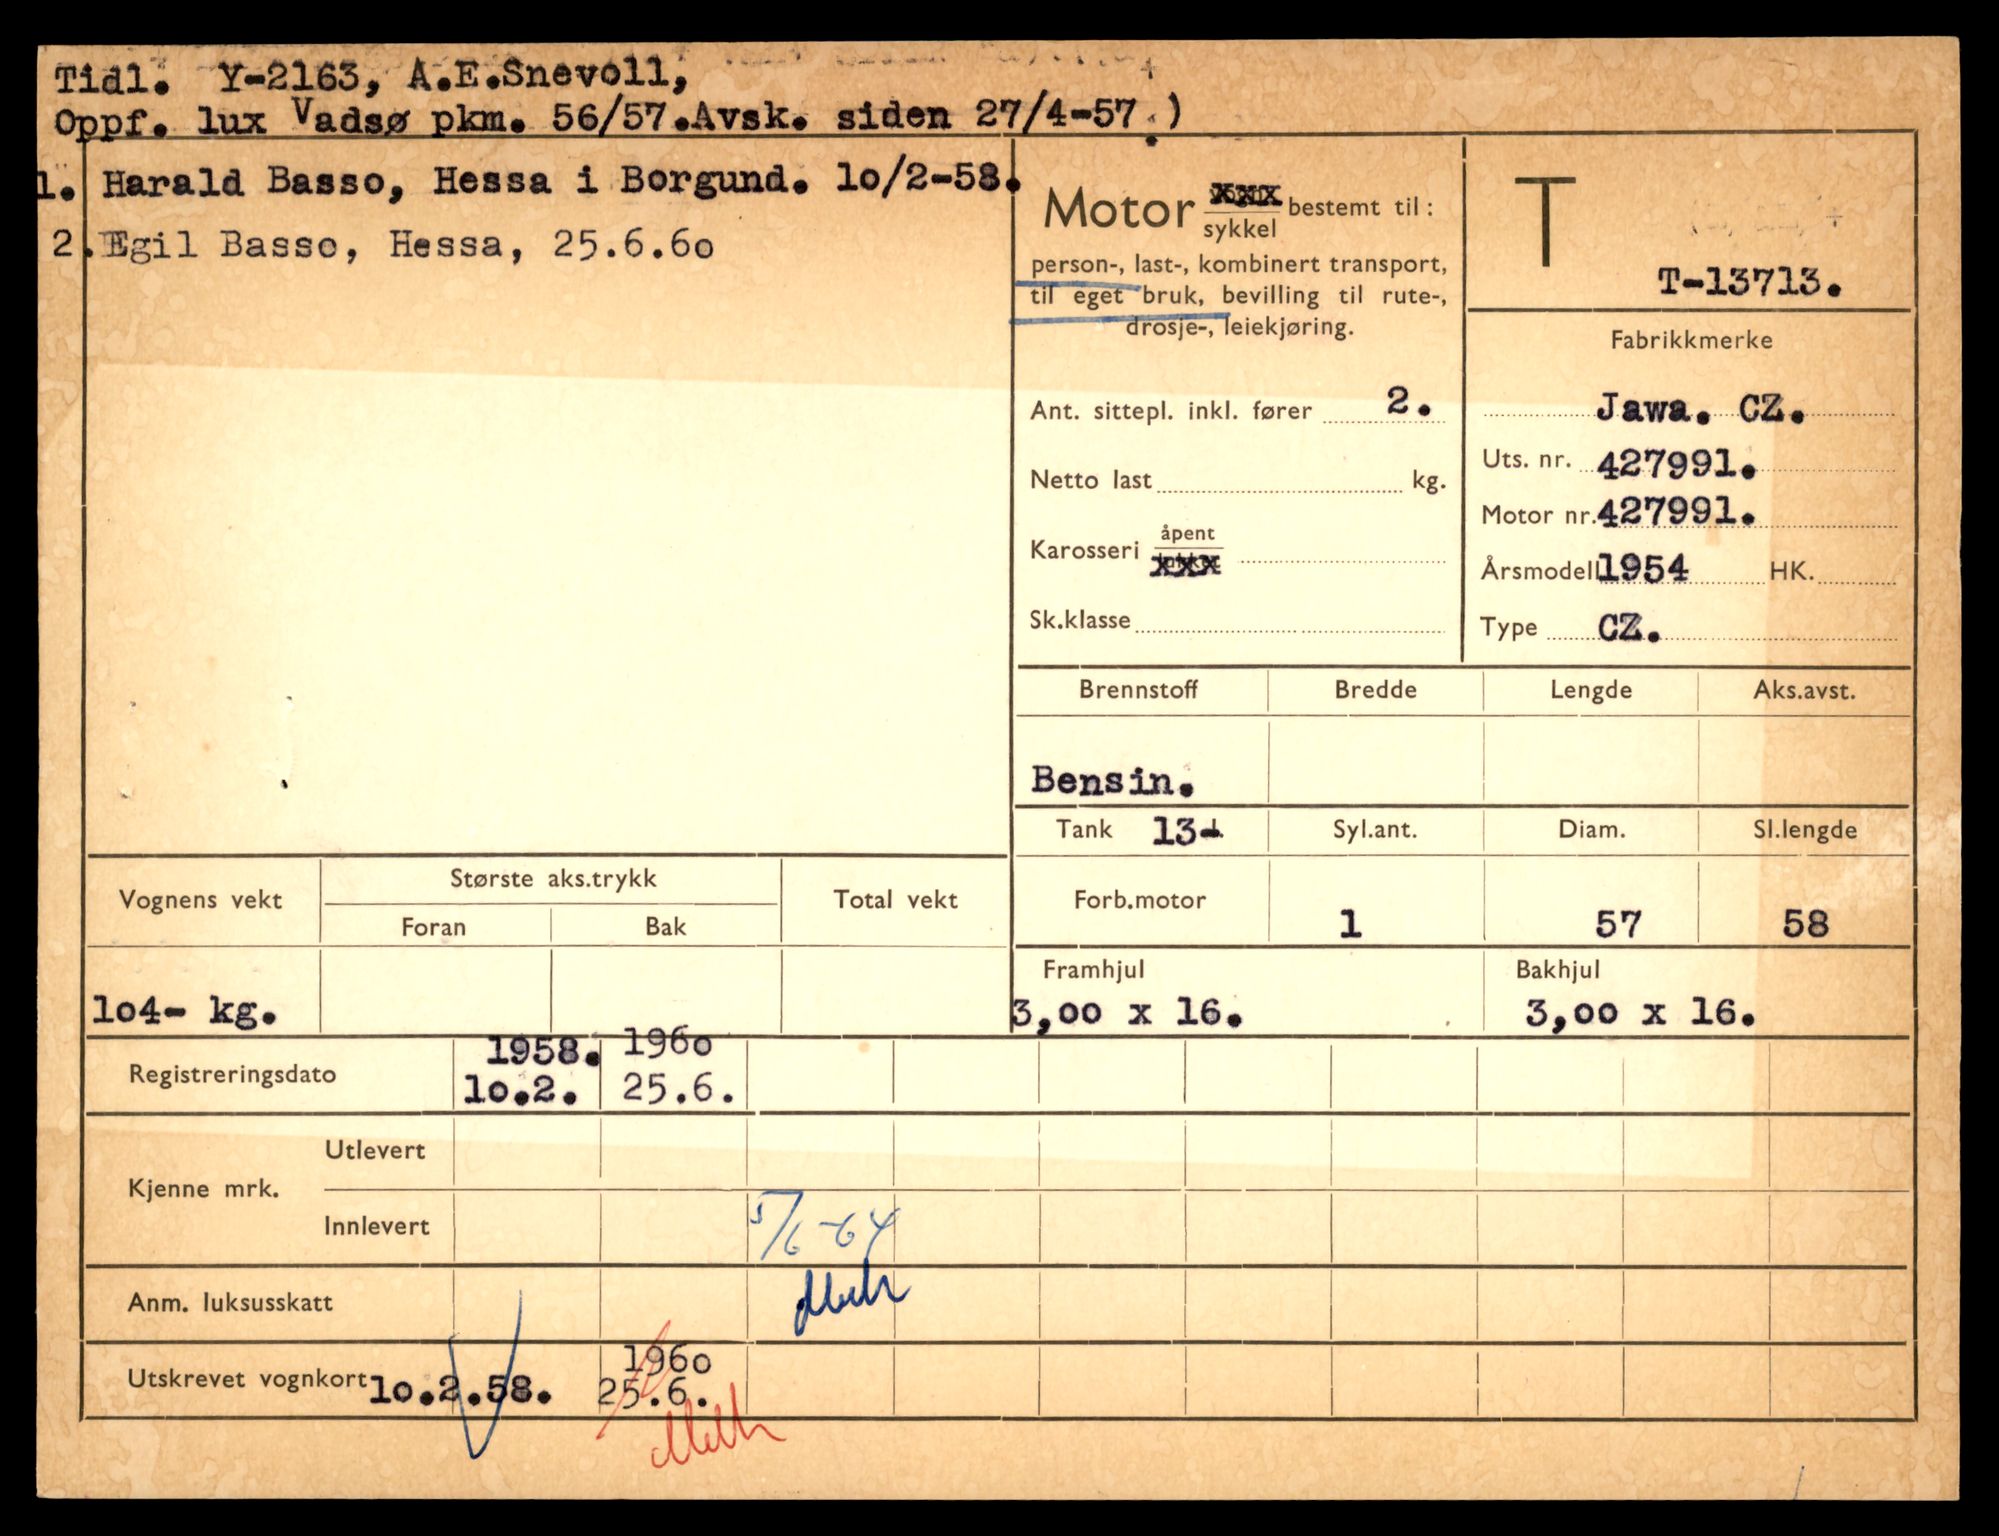 Tidl. Y-2163, A.E.Snevoll,
Oppf. lux Vadsø pkm. 56/57.Avsk. siden 27/4-57.)
1. Harald Basso, Hessa i Borgund. 10/2-58.
2. Egil Basso, Hessa, 25.6.60
Motor xxx sykkel bestemt til:
person-, last-, kombinert transport,
til eget bruk, bevilling til rute-,
drosje-, leiekjøring.
Ant. sittepl. inkl. fører 2.
Netto last kg.
Karosseri åpent xxx
Sk.klasse
T
T-13713.
Fabrikkmerke
Jawa. CZ.
Uts. nr. 427991.
Motor nr. 427991.
Årsmodell 1954 HK.
Type CZ.
Brennstoff Bredde Lengde Aks.avst.
Bensin.
Tank 13- Syl.ant. Diam. Sl.lengde
Forb.motor 1 57 58
Framhjul Bakhjul
3,00 x 16. 3,00 x 16.
Vognens vekt Største aks.trykk Total vekt
Foran Bak
104- kg.
Registreringsdato 1958. 1960
10.2. 25.6.
Kjenne mrk. Utlevert
Innlevert 5/6-64
Anm. luksusskatt
Utskrevet vognkort 10.2.58. 1960
25.6.